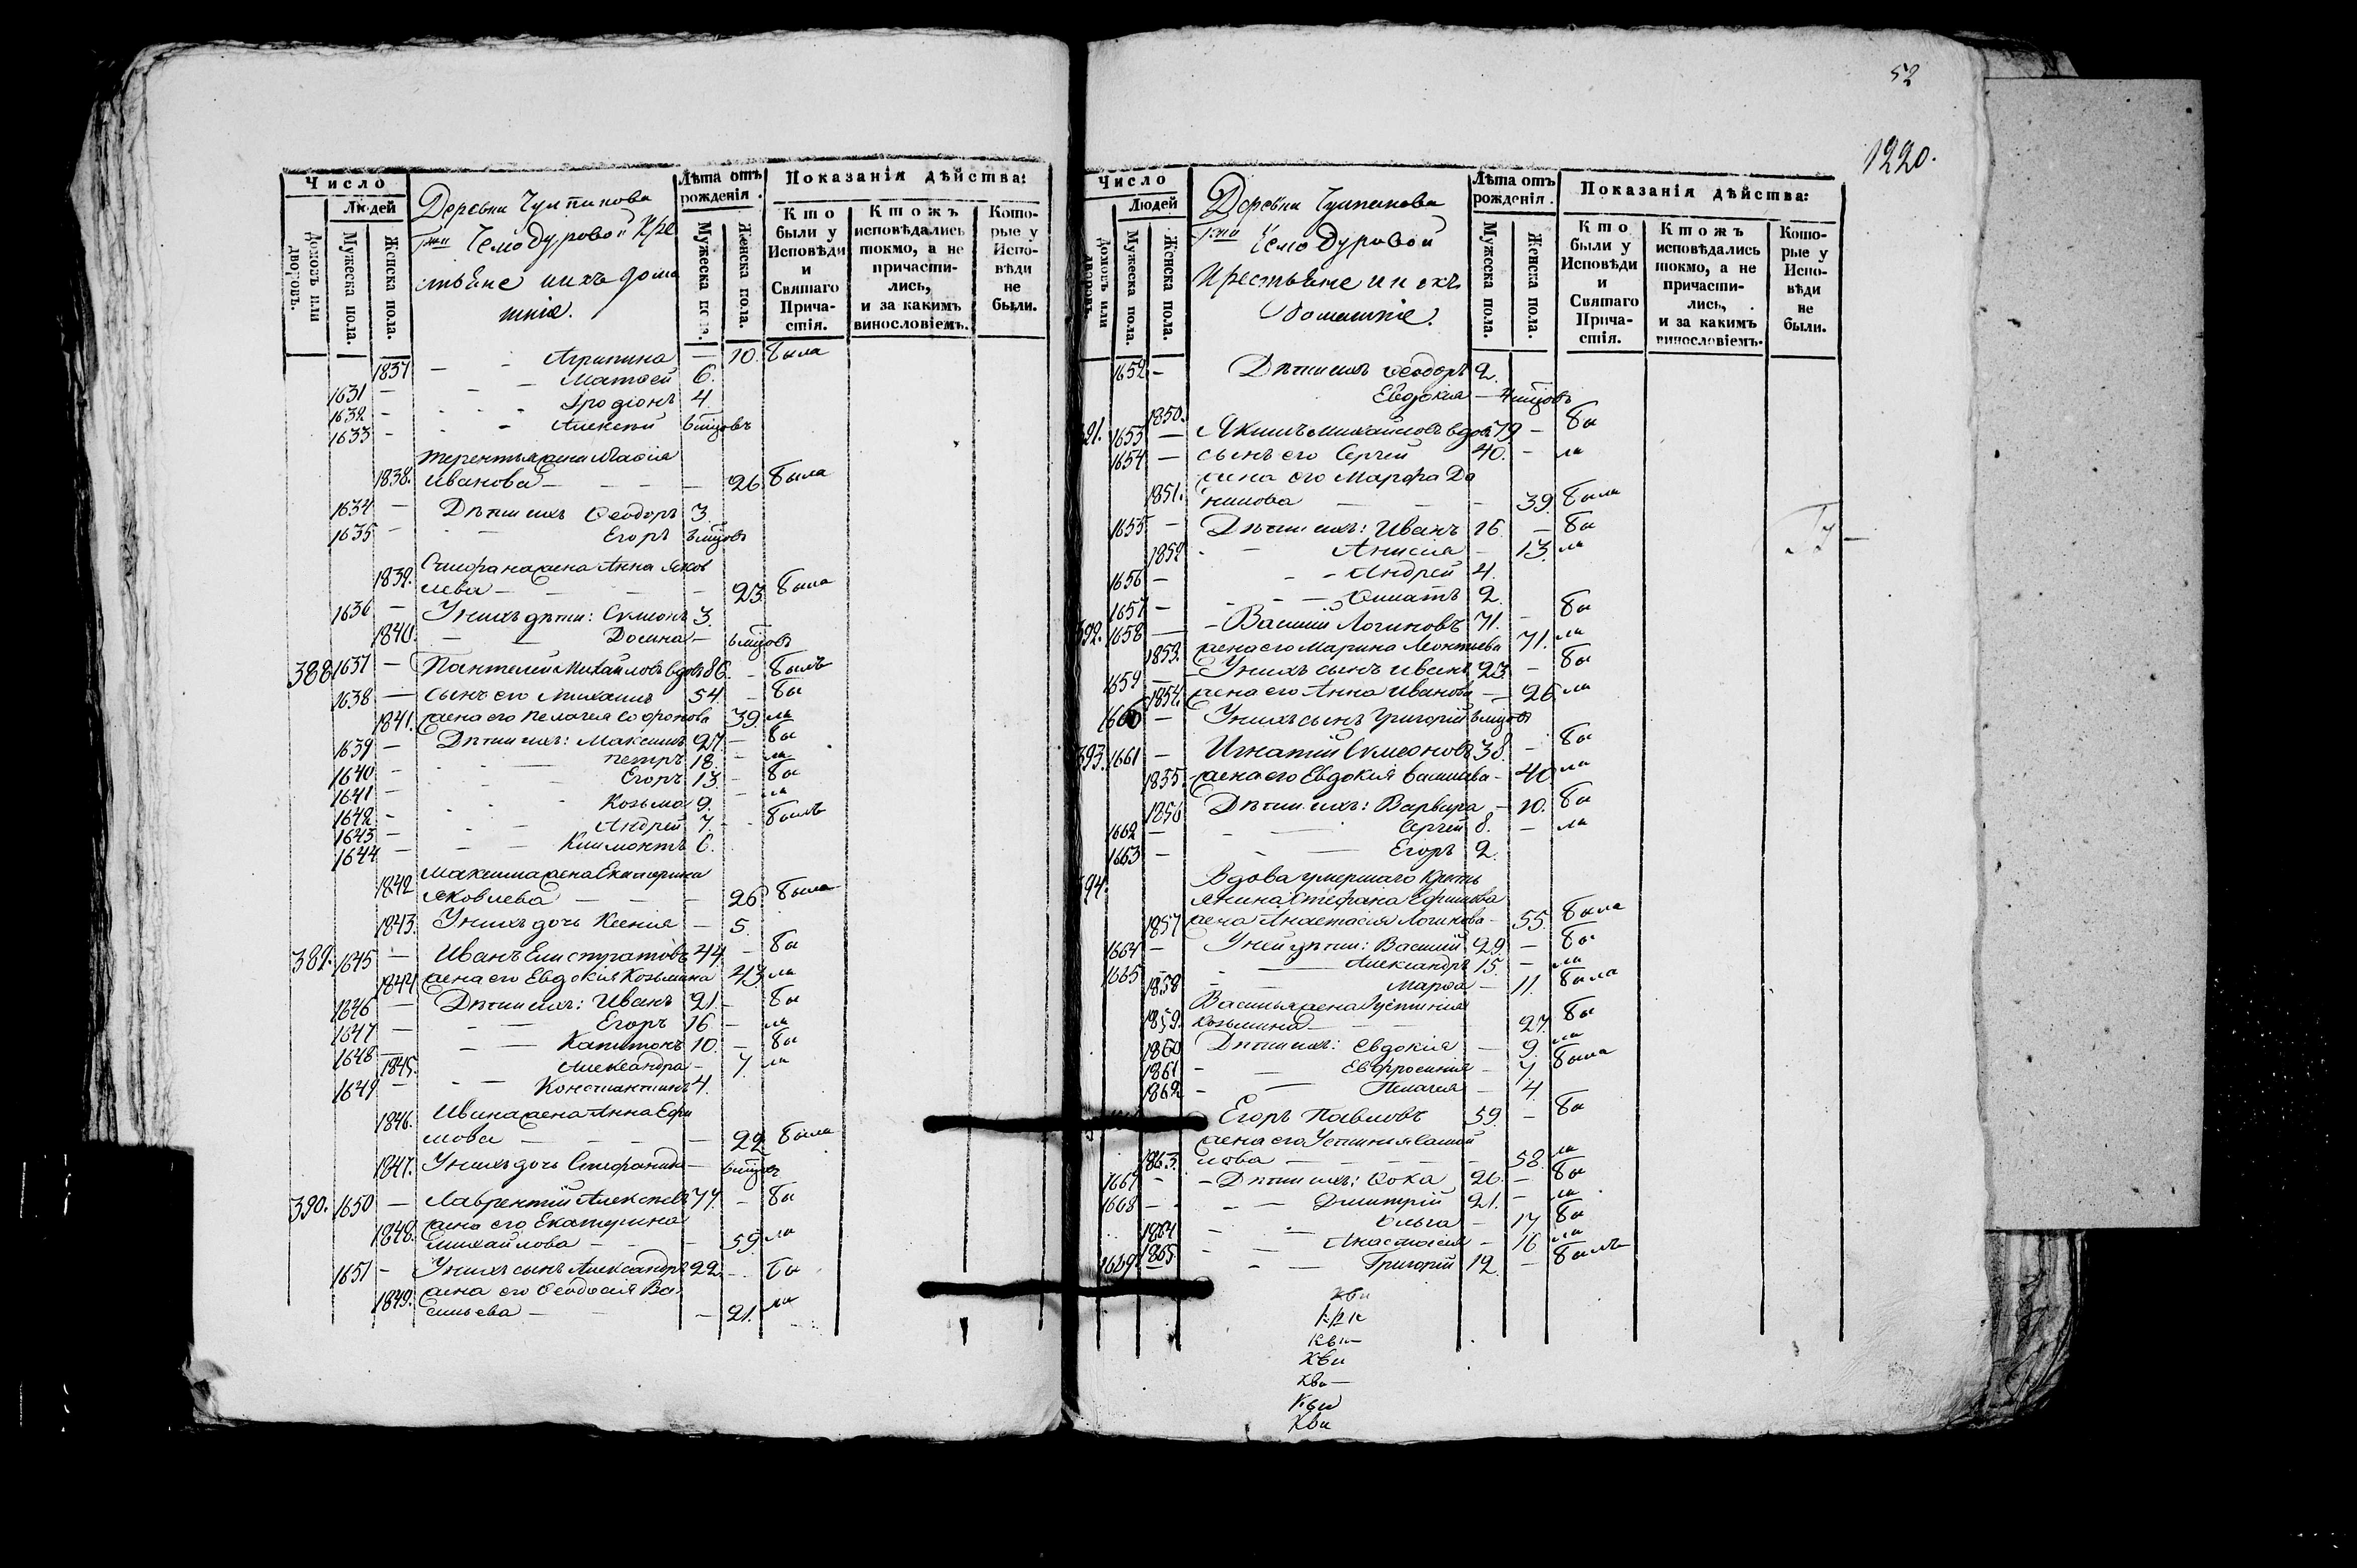 Число
Людей
Домовъ или дворовъ.
Мужеска пола.
Женска пола.
Деревни
Гжи Чемодуровой Кре
стьяне и ихъ дома
шніе.
Лѣта отъ рожденія.
Мужеска пола.
Женска пола.
Показанія дѣйства:
Кто были у Исповѣди и Святаго Причастія.
Ктожъ исповѣдались токмо, а не причастились, и за какимъ винословіемъ.
Которые у Исповѣди не были.
1837 Агрипина — 10. была
1631 — Матвей 6.
1632 — Іродіонъ 4.
1633 — Алексѣй 6 мцовъ
Терентья жена
1838. Иванова — 26. была
1634 — Дѣти ихъ Ѳеодоръ 3
1635 — Егоръ мцовъ
Стефана жена Анна Яков
1839. лева — 23. была
1636 — У нихъ дѣти: Сумеонъ 3.
1840. Домна — 6 мцовъ
388 1637 — Пантелей Михайловъ вдовъ 86. — былъ
1638 — Сынъ его Михаилъ 54. — бы
1841. жена его Пелагея Софронова 39. ли
1639 — Дѣти ихъ: Максимъ 27 — бы
1640 — Петръ 18. — ли
1641 — Егоръ 13. — бы
1642 — Козьма 9. — ли
1643 — Андрей 7. — былъ
1644 — Климонтъ 6.
Максима жена Екатерина
1842 Яковлева — 26. была
1843. У нихъ дочь Ксенія — 5.
389. 1645 — Иванъ Елистратовъ 44. — бы
1844 жена его Евдокія Козьмина 43. ли
1646 — Дѣти ихъ: Иванъ 21. — бы
1647 — Егоръ 16 — ли
1648 — Капитонъ 10. — бы
1845. Александра — 7. ли
1649 — Константинъ 4.
Ивана жена Анна Ефи
1846. мова — 22. была
1847. У нихъ дочь Стефанида — 6 мцовъ
390. 1650 — Лаврентій Алексѣевъ 77. — бы
жена его Екатерина
1848. Михайлова — 59. ли
1651 — У нихъ сынъ Александръ 22. — бы
жена его Ѳеодосія Ва
1849. сильева — 21. ли
52
1220.
Число
Людей
Домовъ или дворовъ.
Мужеска пола.
Женска пола.
Деревни
Гжи Чемодуровой
Крестьяне и ихъ
домашніе.
Лѣта отъ рожденія.
Мужеска пола.
Женска пола.
Показанія дѣйства:
Кто были у Исповѣди и Святаго Причастія.
Ктожъ исповѣдались токмо, а не причастились, и за какимъ винословіемъ.
Которые у Исповѣди не были.
1652 — Дѣти ихъ Ѳеодоръ 2.
1850. Евдокія — 4 мцовъ
91. 1653 — Якимъ Михайловъ вдовъ 79 — бы
1654 — Сынъ его Сергей 40. — ли
жена его Марфа Да
1851. нилова — 39. была
1655 — Дѣти ихъ: Иванъ 16. — бы
1852 Анисія — 13. ли
1656 — Андрей 4.
1657 — 2.
92. 1658 — Василій Логиновъ 71. — бы
1853. жена его Марина Леонтьева 71. ли
1659 — У нихъ сынъ Иванъ 23. — бы
1854. жена его Анна Иванова — 26 ли
1660 — У нихъ сынъ Григорій мцовъ
93. 1661 — Игнатій Сумеоновъ 38. — бы
1855. жена его Евдокія Васильева — 40 ли
1856 Дѣти ихъ: Варвара — 10. бы
1662 — Сергей 8. — ли
1663 — Егоръ 2.
94. Вдова умершаго Кресть
янина Стефана Ефимова
1857 жена Анастасія Логинова — 55. была
1664 — У ней дѣти: Василій 29. — бы
1665 — Александръ 15. — ли
1858 Марфа — 11. была
Василья жена Устинія
1859. Козьмина — 27. бы
1860 Дѣти ихъ: Евдокія — 9. ли
1861 — Евфросинія — 7. была
1862 — Пелагея — 4
Егоръ Павловъ 59. — бы
жена его Устинія
1863. — 58. ли
1667 — Дѣти ихъ: Ѳока 26. — бы
1668 — Димитрій 21. — ли
1864 — Ольга — 17 бы
1865. — Анастасія — 16 ли
1669 — Григорій 12. — былъ